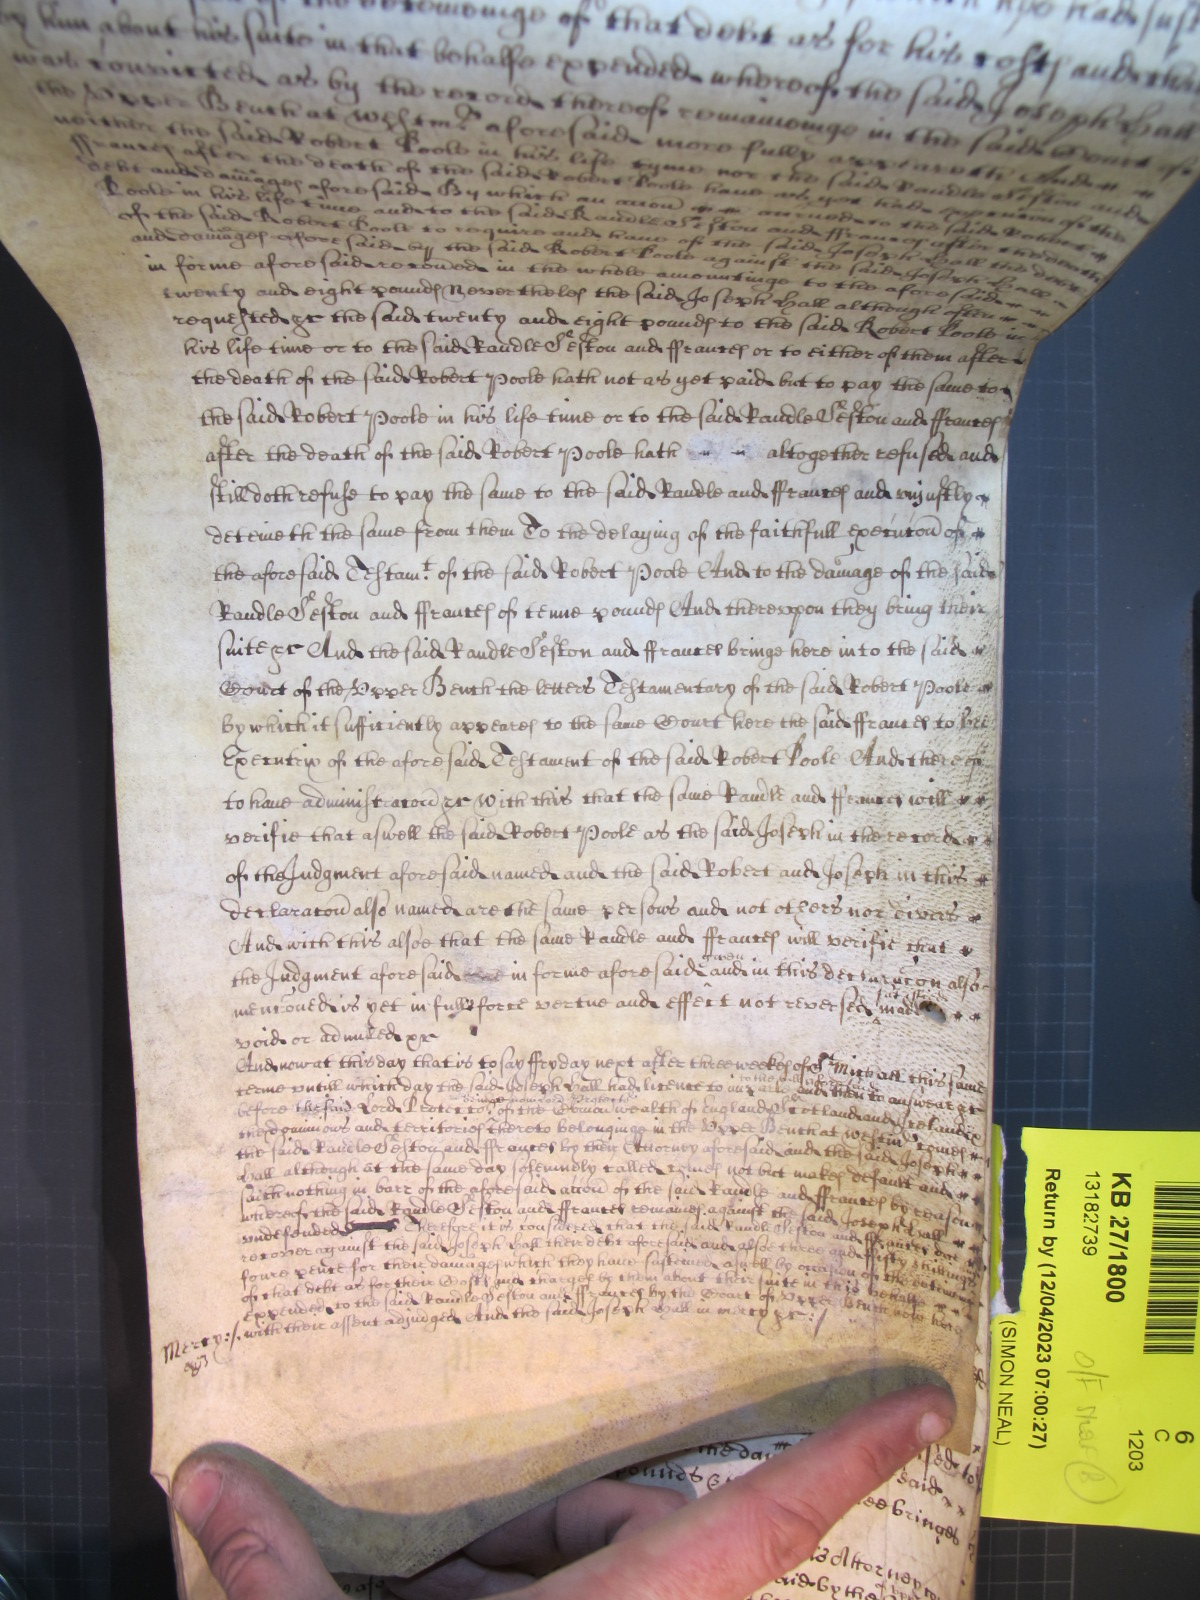 of the deteineinge of that debt as for his Costs and cha
by him about his suite in that behalfe expended whereof the said Joseph Hall
was convicted as by the record thereof remaineinge in the said Court of
the Upper Bench at Westmr aforesaid more fully appeareth And
neither the said Robert Poole in his life tyme nor the said Randle Seston and
ffrances after the death of the said Robert Poole have as yet had execucon of the
debt and damages aforesaid By which an accon accrued to the said Robert
Poole in his life time and to the said Randle Seston and ffrances after the death
of the said Robert Poole to require and have of the said Joseph Hall the debt
and damages aforesaid by the said Robert Poole against the said Joseph Hall
in forme aforesaid recovered in the whole amountinge to the aforesaid
twenty and eight pounds Neverthelesse the said Joseph Hall although often
requested &c the said twenty and eight pounds to the said Robert Poole in
his life time or to the said Randle Seston and ffrances or to either of them after
the death of the said Robert Poole hath not as yet paid but to pay the same to
the said Robert Poole in his life time or to the said Randle Seston and ffrances
after the death of the said Robert Poole hath altogether refused and
still doth refuse to pay the same to the said Randle and ffrances and uniustly
deteineth the same from them To the delaying of the faithfull execucon of
the aforesaid Testamt of the said Robert Poole And to the damage of the said
Randle Seston and ffrances of tenne pounds And thereupon they bring their
suite &c And the said Randle Seston and ffrances bringe here into the said
Court of the Upper Bench the letters Testamentary of the said Robert Poole
by which it sufficiently appeares to the same Court here the said ffrances to bee
Executrix of the aforesaid Testament of the said Robert Poole And thereof
to have administracon &c With this that the same Randle and ffrances will
verifie that aswell the said Robert Poole as the said Joseph in the record
of the Judgment aforesaid named and the said Robert and Joseph in this
declaracon also named are the same persons and not others nor divers
And with this alsoe that the same Randle and ffrances will verifie that
the Judgment aforesaid in forme aforesaid given and in this declaracon also
menconed is yet in full force vertue and effect not reversed made
void or adnulled &c
And now at this day that is to say ffryday next after three weekes of St Mich all this same
terme untill which day the said Joseph Hall had licence to and then to answeare &c
before the said Lord Protector of the Comon wealth of England Scotland and Ireland &
the dominions and territories thereto belonginge in the Upper Bench at Westmr comes
the said Randle Seston and ffrances by their Attorney aforesaid and the said Joseph
Hall although at the same day solemndly called comes not but makes default and
saith nothing in barr of the aforesaid accon of the said Randle and ffrances by reason
whereof the said Randle Seston and ffrances remaines against the said Joseph Hall
undefended Therefore it is considered that the said Randle Seston and ffrances doe
recover against the said Joseph Hall their debt aforesaid and alsoe three and fifty shillings
foure pence for their damages which they have susteined aswell by occasion of the deteineinge
of that debt as for their Costs and charges by them about their suite in this behalfe
expended to the said Randle Seston and ffrances by the Court of Upper Bench now here
with their assent adjudged And the said Joseph Hall in mercy &c
Mercy
KB 27/1800
13182739
Return by (12/04/2023 07:00:27)
(SIMON NEAL)
6
C
1203
pounds
said
hee bringes
his Attorney
said by the